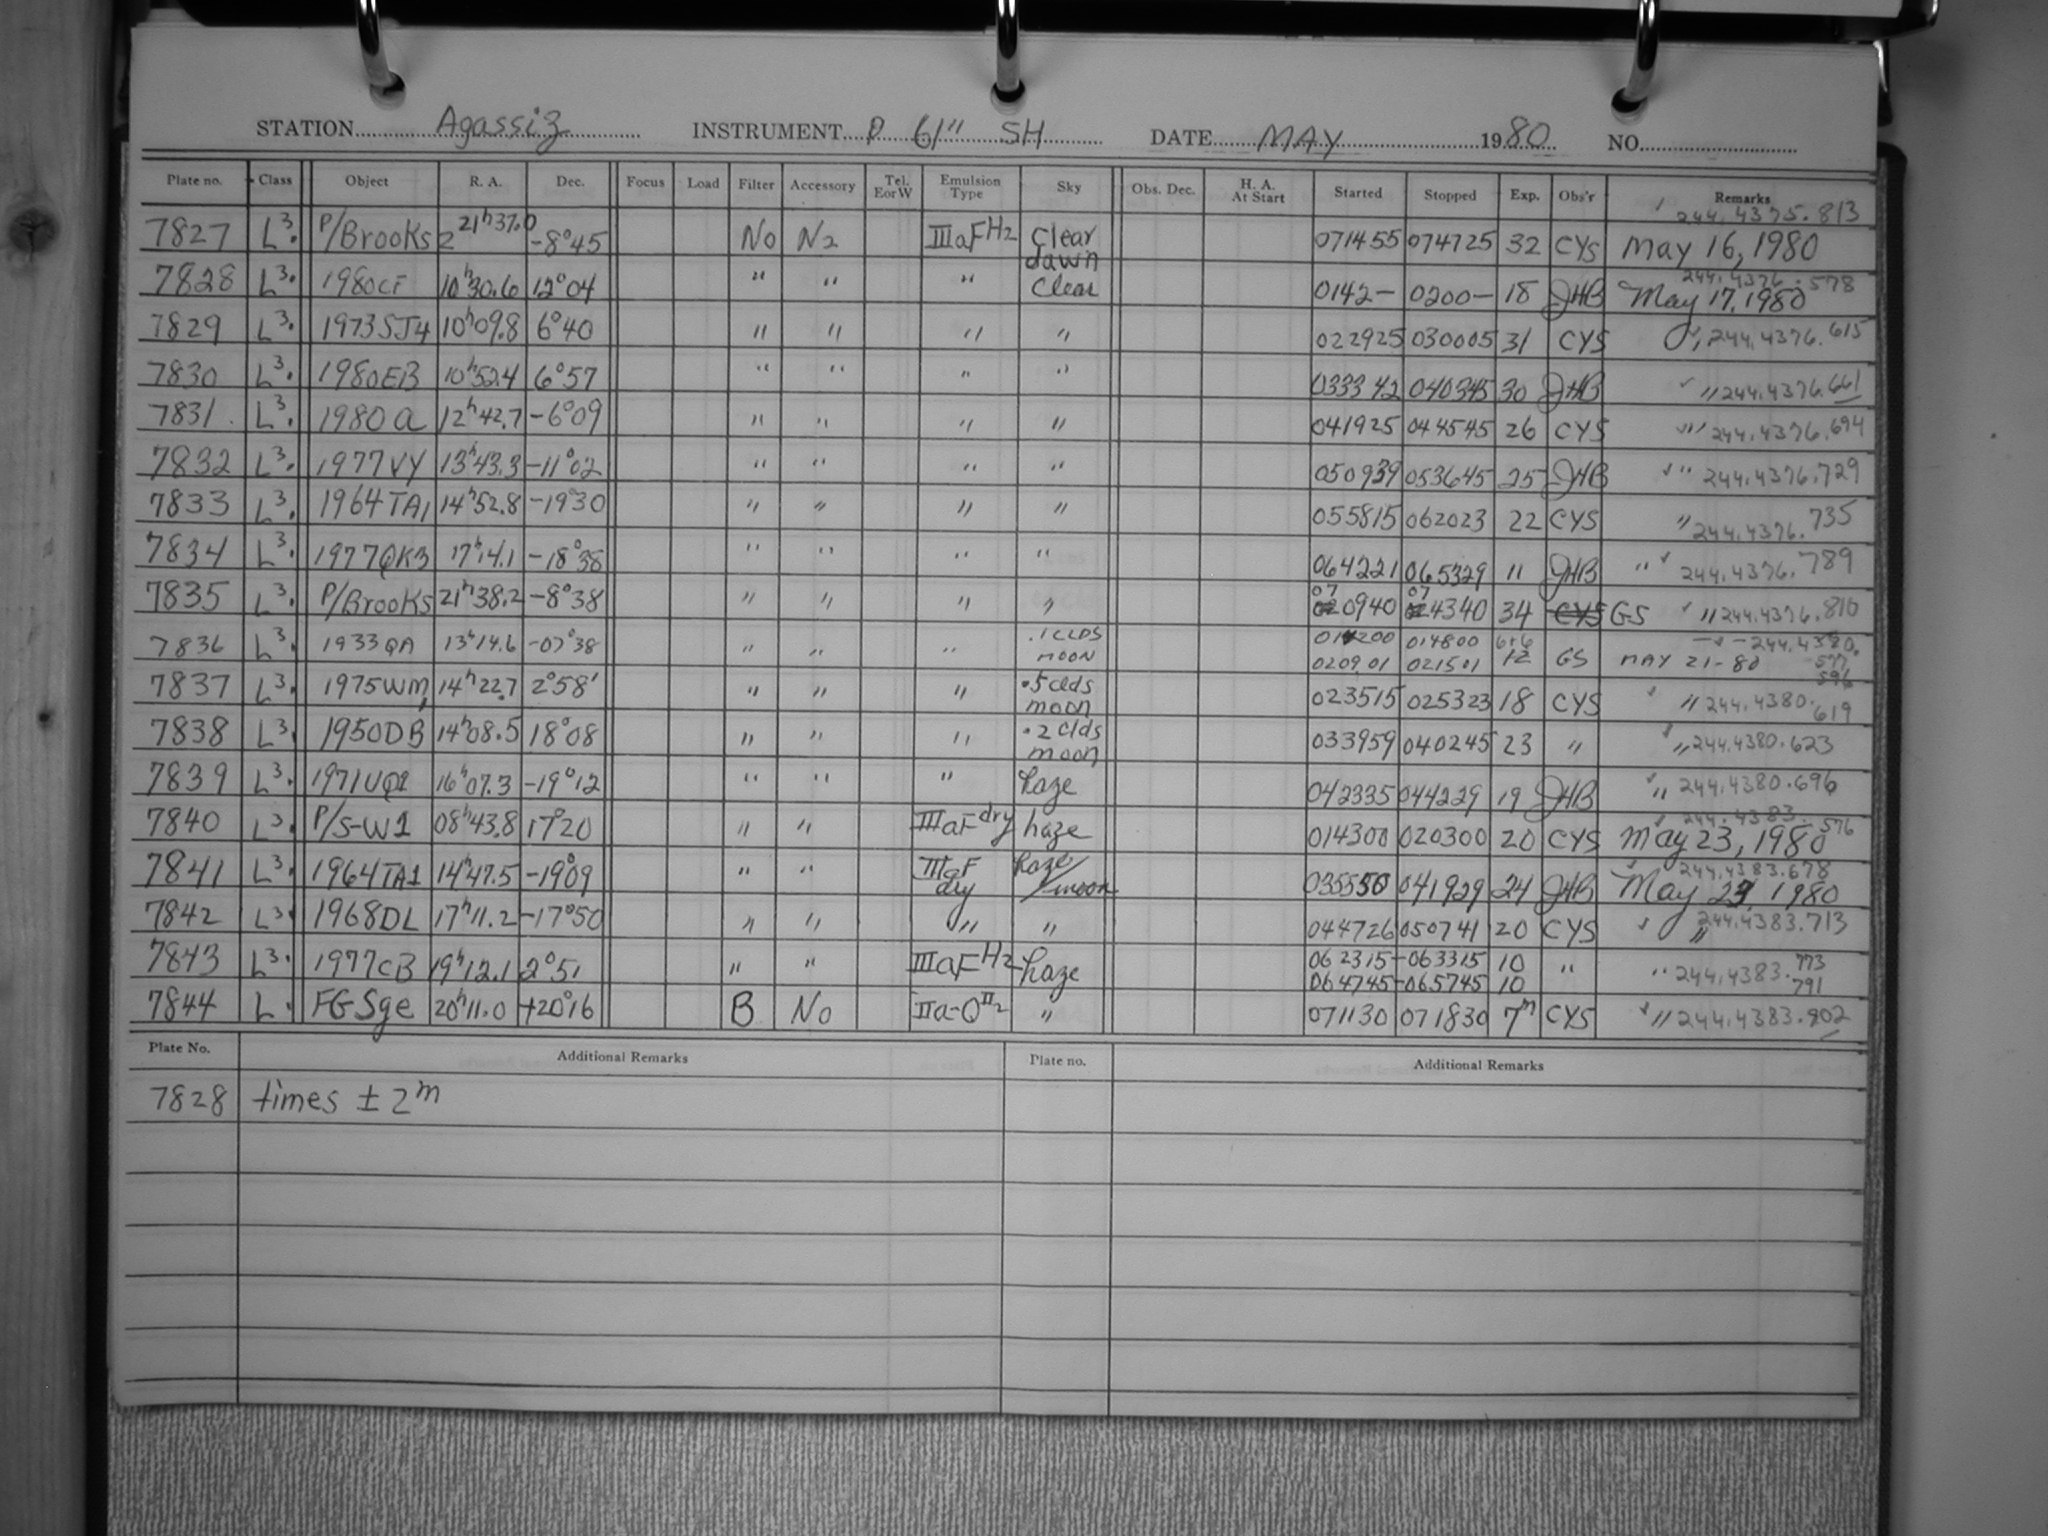 STATION Agassiz INSTRUMENT P 61" SH DATE MAY 1980 NO.
Plate no. Class Object R. A. Dec. Focus Load Filter Accessory Tel. E or W Emulsion Type Sky Obs. Dec. H. A. At Start Started Stopped Exp. Obs'r Remarks
7827 L3. P/Brooks 2 21h37.0 -8°45 No N2 IIIaF H2 clear dawn 071455 074725 32 CYS 244,4375.813 May 16, 1980
7828 L3. 1980CF 10h30.6 12°04 " " " clear 0142- 0200- 18 JHB 244,4376.578 May 17, 1980
7829 L3. 1973SJ4 10h09.8 6°40 " " " " 022925 030005 31 CYS " 244,4376.615
7830 L3. 1980EB 10h52.4 6°57 " " " " 033342 040345 30 JHB " 244,4376.661
7831 L3. 1980a 12h42.7 -6°09 " " " " 041925 044545 26 CYS " 244,4376.694
7832 L3. 1977VY 13h43.3 -11°02 " " " " 050939 053645 25 JHB " 244,4376.729
7833 L3. 1964TA1 14h52.8 -19°30 " " " " 055815 062023 22 CYS " 244,4376.735
7834 L3. 1977QK3 17h14.1 -18°38 " " " " 064221 065329 11 JHB " 244,4376.789
7835 L3. P/Brooks 21h38.2 -8°38 " " " " 070940 074340 34 CYS GS " 244,4376.810
7836 L3. 1933QA 13h14.6 -07°38 " " " .1 CLDS MOON 014200 014800 6+6 244,4380.577
020901 021501 12 GS MAY 21-80 596
7837 L3. 1975WM1 14h22.7 2°58' " " " .5 clds moon 023515 025323 18 CYS " 244,4380.619
7838 L3. 1950DB 14h08.5 18°08 " " " .2 clds moon 033959 040245 23 " " 244,4380.623
7839 L3. 1971UQ1 16h07.3 -19°12 " " " haze 042335 044229 19 JHB " 244,4380.696
7840 L3. P/S-W1 08h43.8 17°20 " " IIIaF dry haze 014300 020300 20 CYS 244,4383.576 May 23, 1980
7841 L3. 1964TA1 14h47.5 -19°09 " " IIIaF dry haze/moon 035550 041929 24 JHB 244,4383.678 May 23, 1980
7842 L3. 1968DL 17h11.2 -17°50 " " " " 044726 050741 20 CYS " 244,4383.713
7843 L3. 1977CB 19h12.1 2°51 " " IIIaF H2 haze 062315-063315 10 " " 244,4383.773
064745-065745 10 791
7844 L. FG Sge 20h11.0 +20°16 B No IIa-O " 071130 071830 7m CYS " 244,4383.802
Plate No. Additional Remarks Plate no. Additional Remarks
7828 times ± 2m